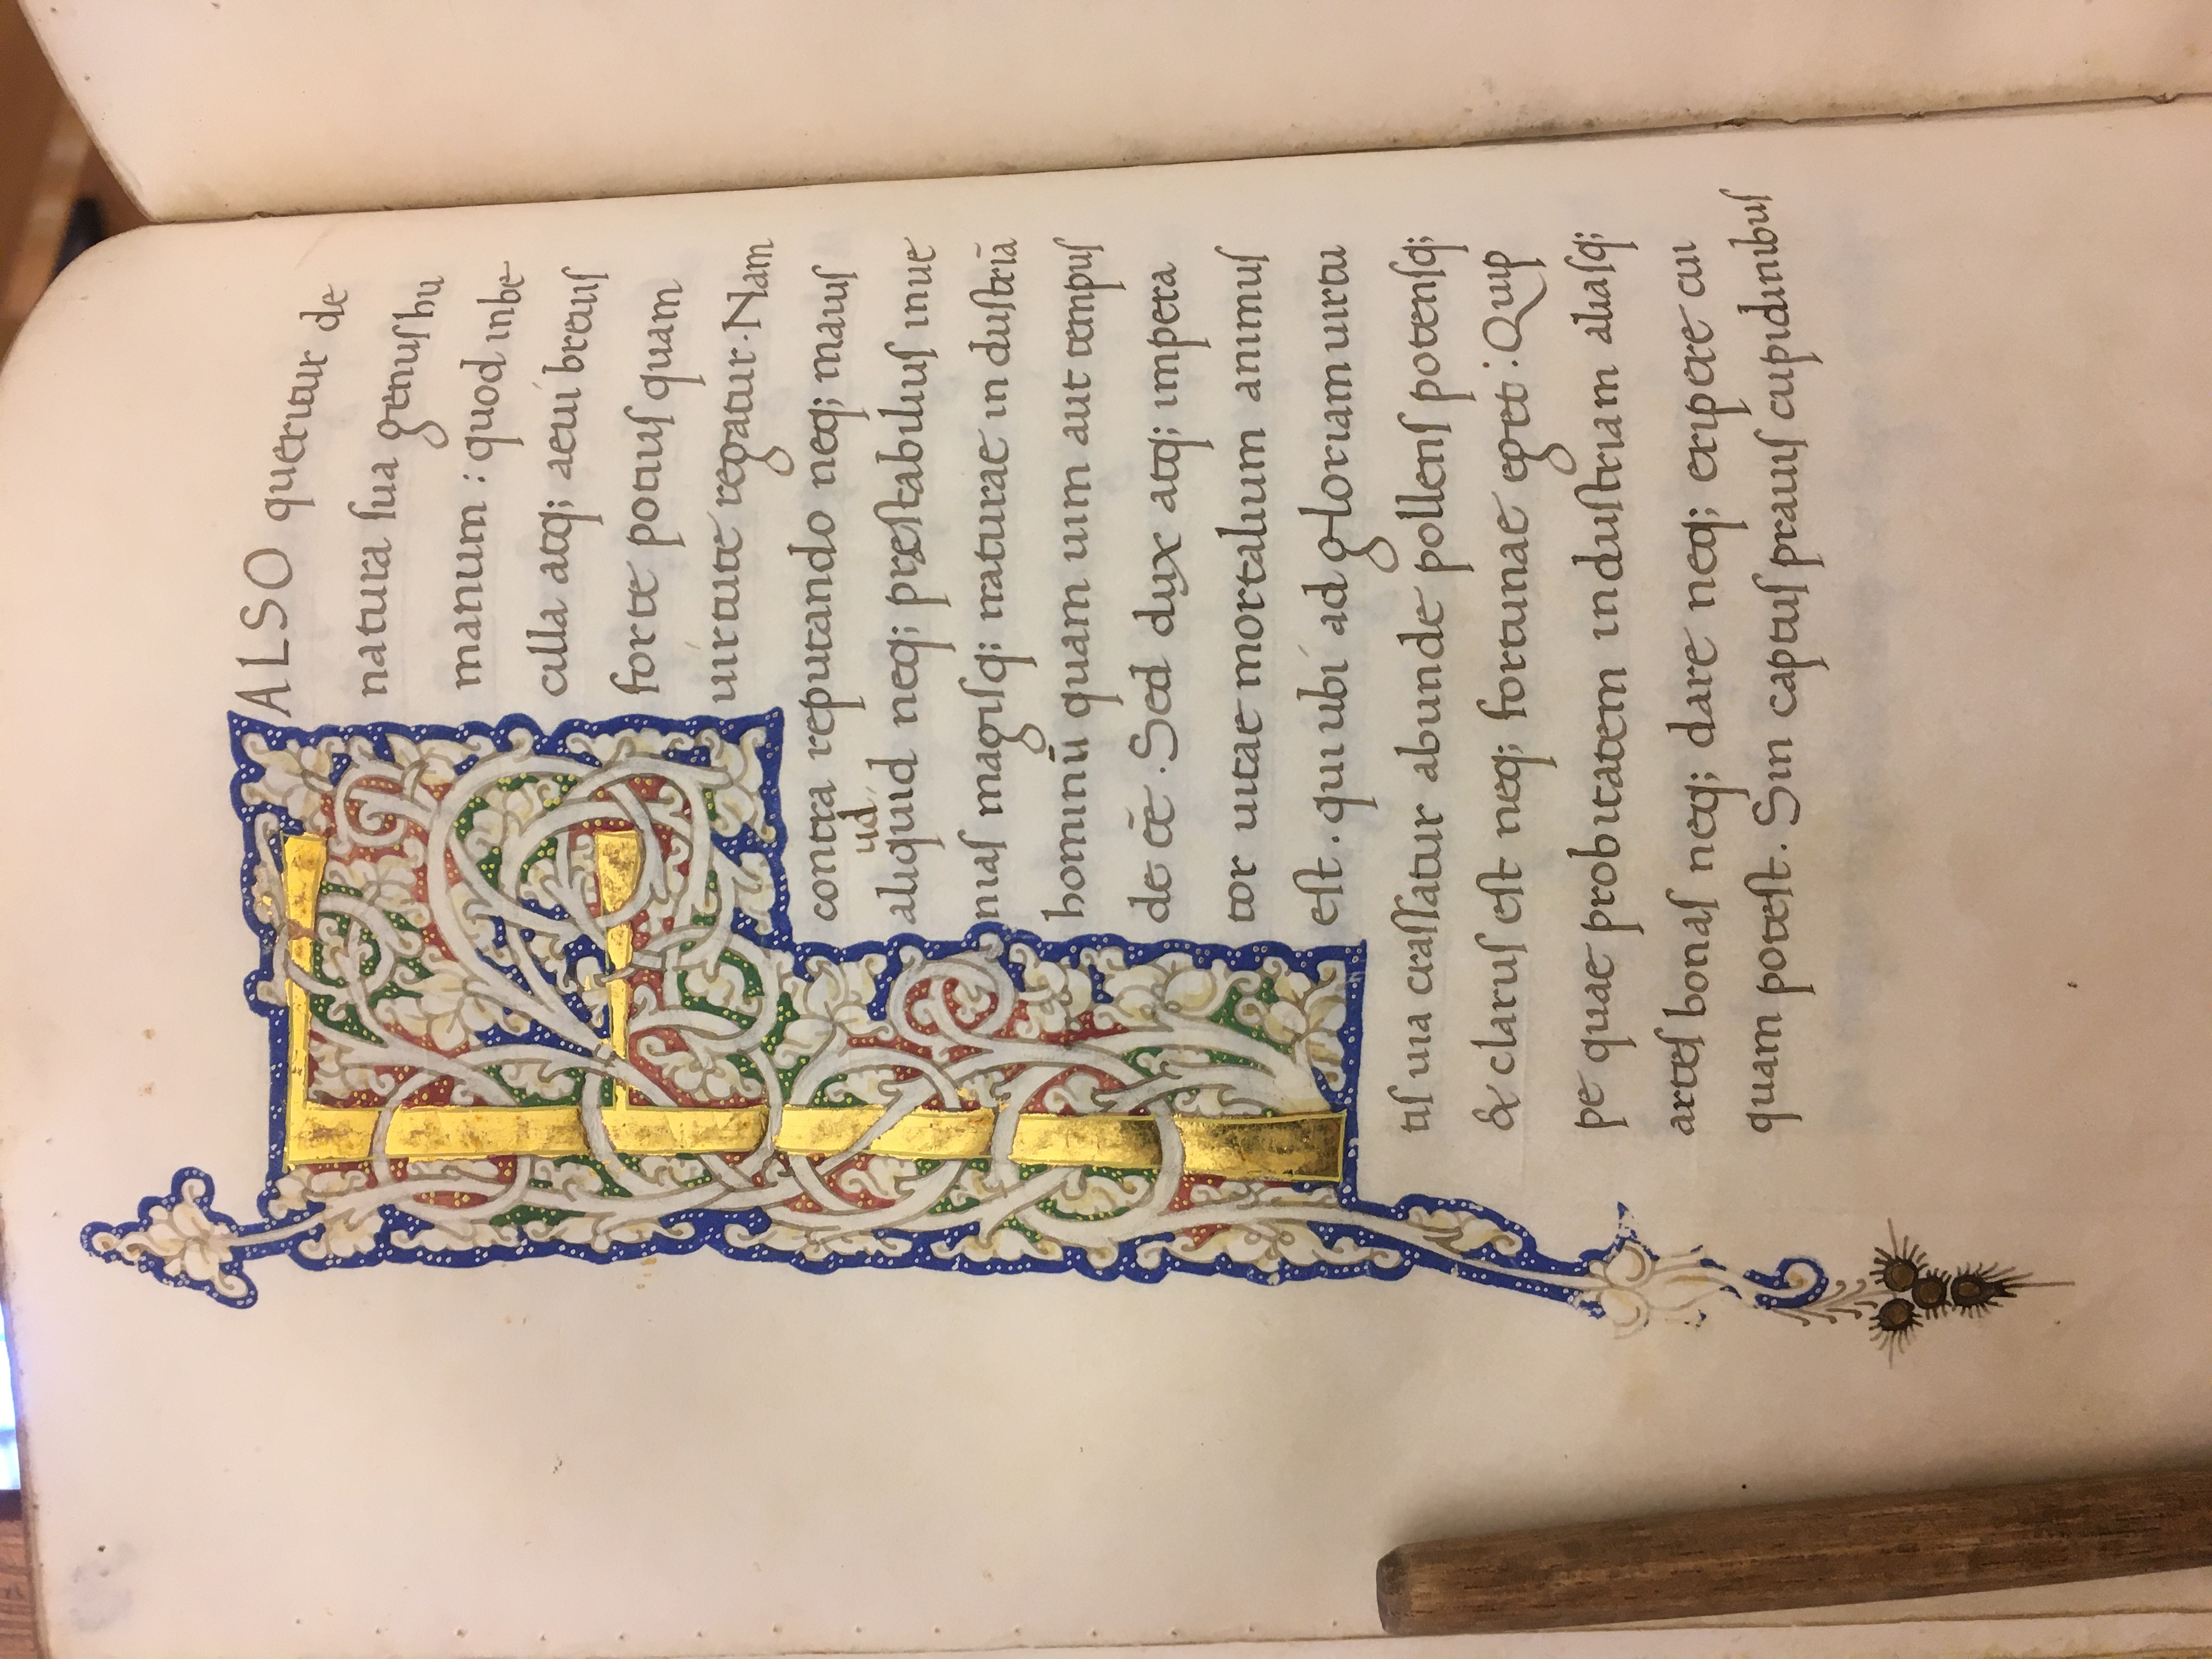 FALSO queritur de
natura sua genus hu
manum : quod inbe
cilla atq; aeui breuis
forte potius quam
uirtute regatur. Nam
contra reputando neq; maius
ud
aliquid neq; prestabilius inue
nias magisq; naturae in dustriā
hominū quam uim aut tempus
de eē. Sed dux atq; impera
tor uitae mortalium animus
est. qui ubi ad gloriam uirtu
tis uia crassatur abunde pollens potensq;
& clarus est neq; fortunae eget : Quip
pe quae probitatem industriam aliasq;
artes bonas neq; dare neq; eripere cui
quam potest. Sin captus prauis cupidinibus